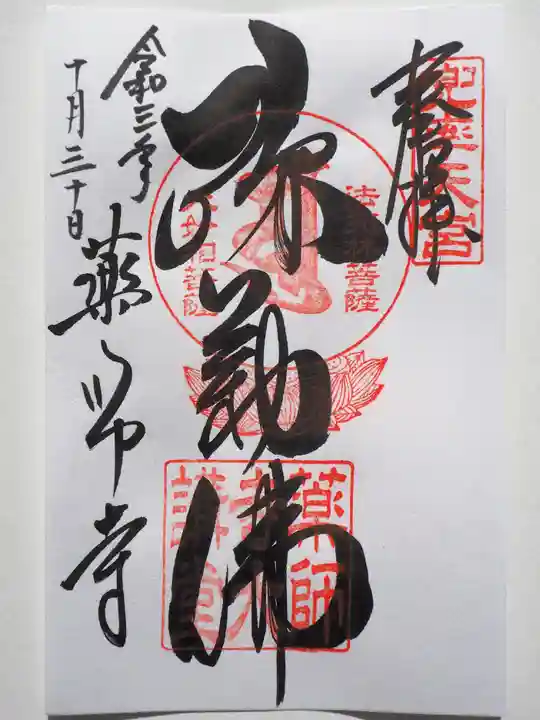 奉拝
兜率天宮
弥勒佛
法苑林菩薩
大妙相菩薩
薬師寺
講堂
令和三年
十月三十日
薬師寺